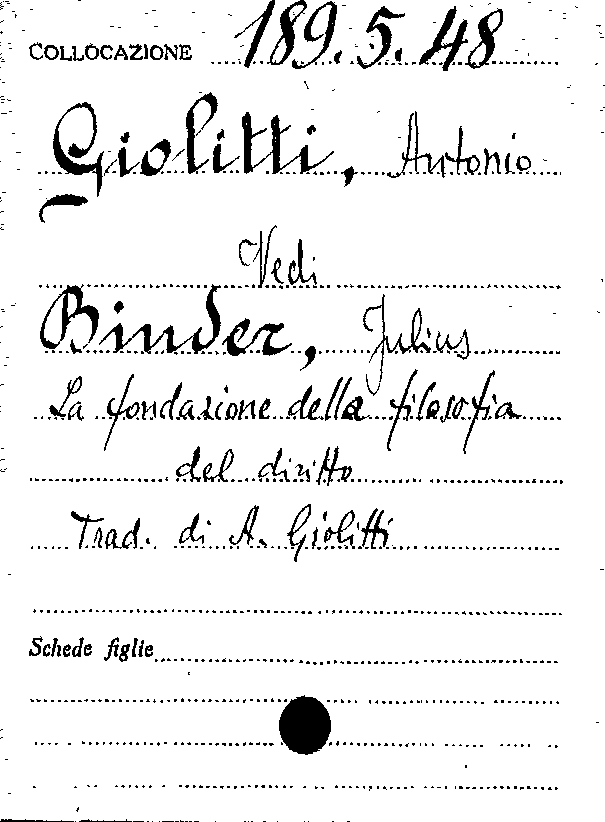 COLLOCAZIONE 189.5.48
Giolitti, Antonio
Vedi
Binder, Julius
La fondazione della filosofia
del diritto
Trad. di A. Giolitti
Schede figlie